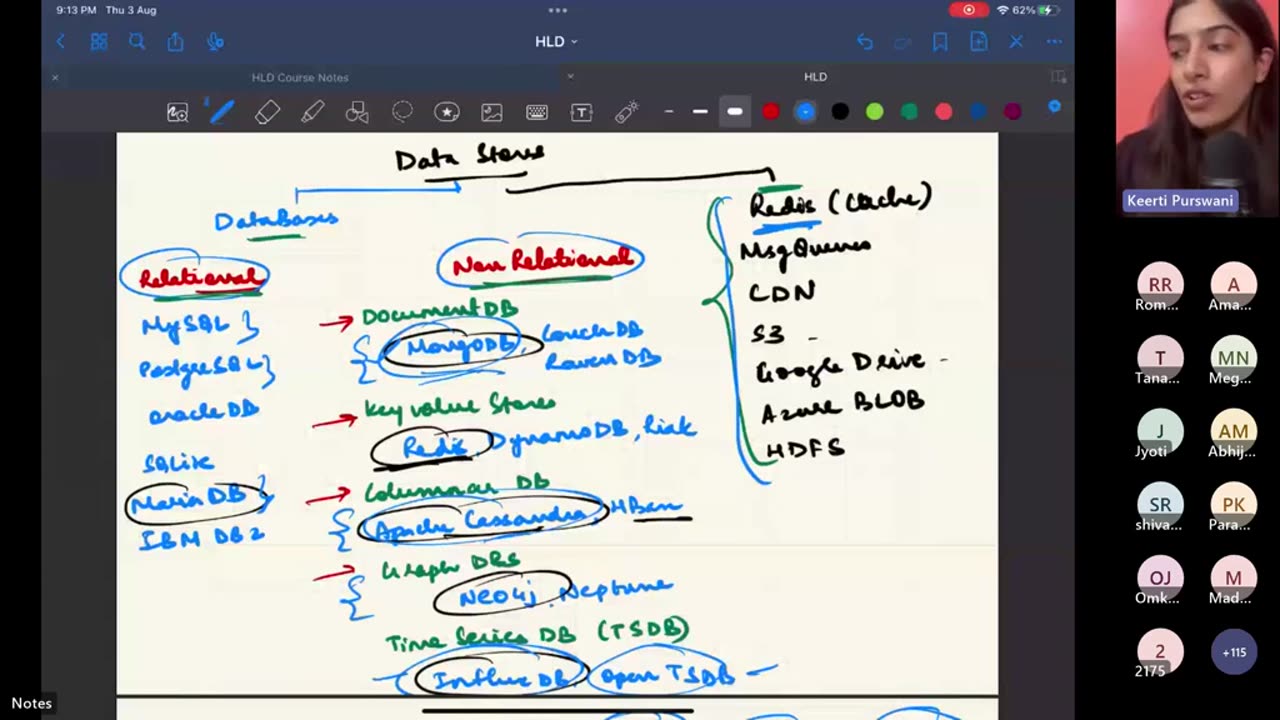 9:13 PM Thu 3 Aug
62%
HLD
HLD Course Notes
HLD
Data Stores
DataBases
Relational
MySQL
PostgreSQL
OracleDB
SQLite
MariaDB
IBM DB2
Non Relational
Document DB
MongoDB, CouchDB
RavenDB
Key value Stores
Redis, DynamoDB, Riak
Columnar DB
Apache Cassandra, HBase
Graph DBs
Neo4j, Neptune
Time Series DB (TSDB)
Influx DB, Open TSDB
Redis (Cache)
Msg Queues
CDN
S3
Google Drive
Azure BLOB
HDFS
Keerti Purswani
RR
A
Rom...
Ama...
T
MN
Tana...
Meg...
J
AM
Jyoti
Abhij...
SR
PK
shiva...
Para...
OJ
M
Omk...
Mad...
2
+115
2175
Notes